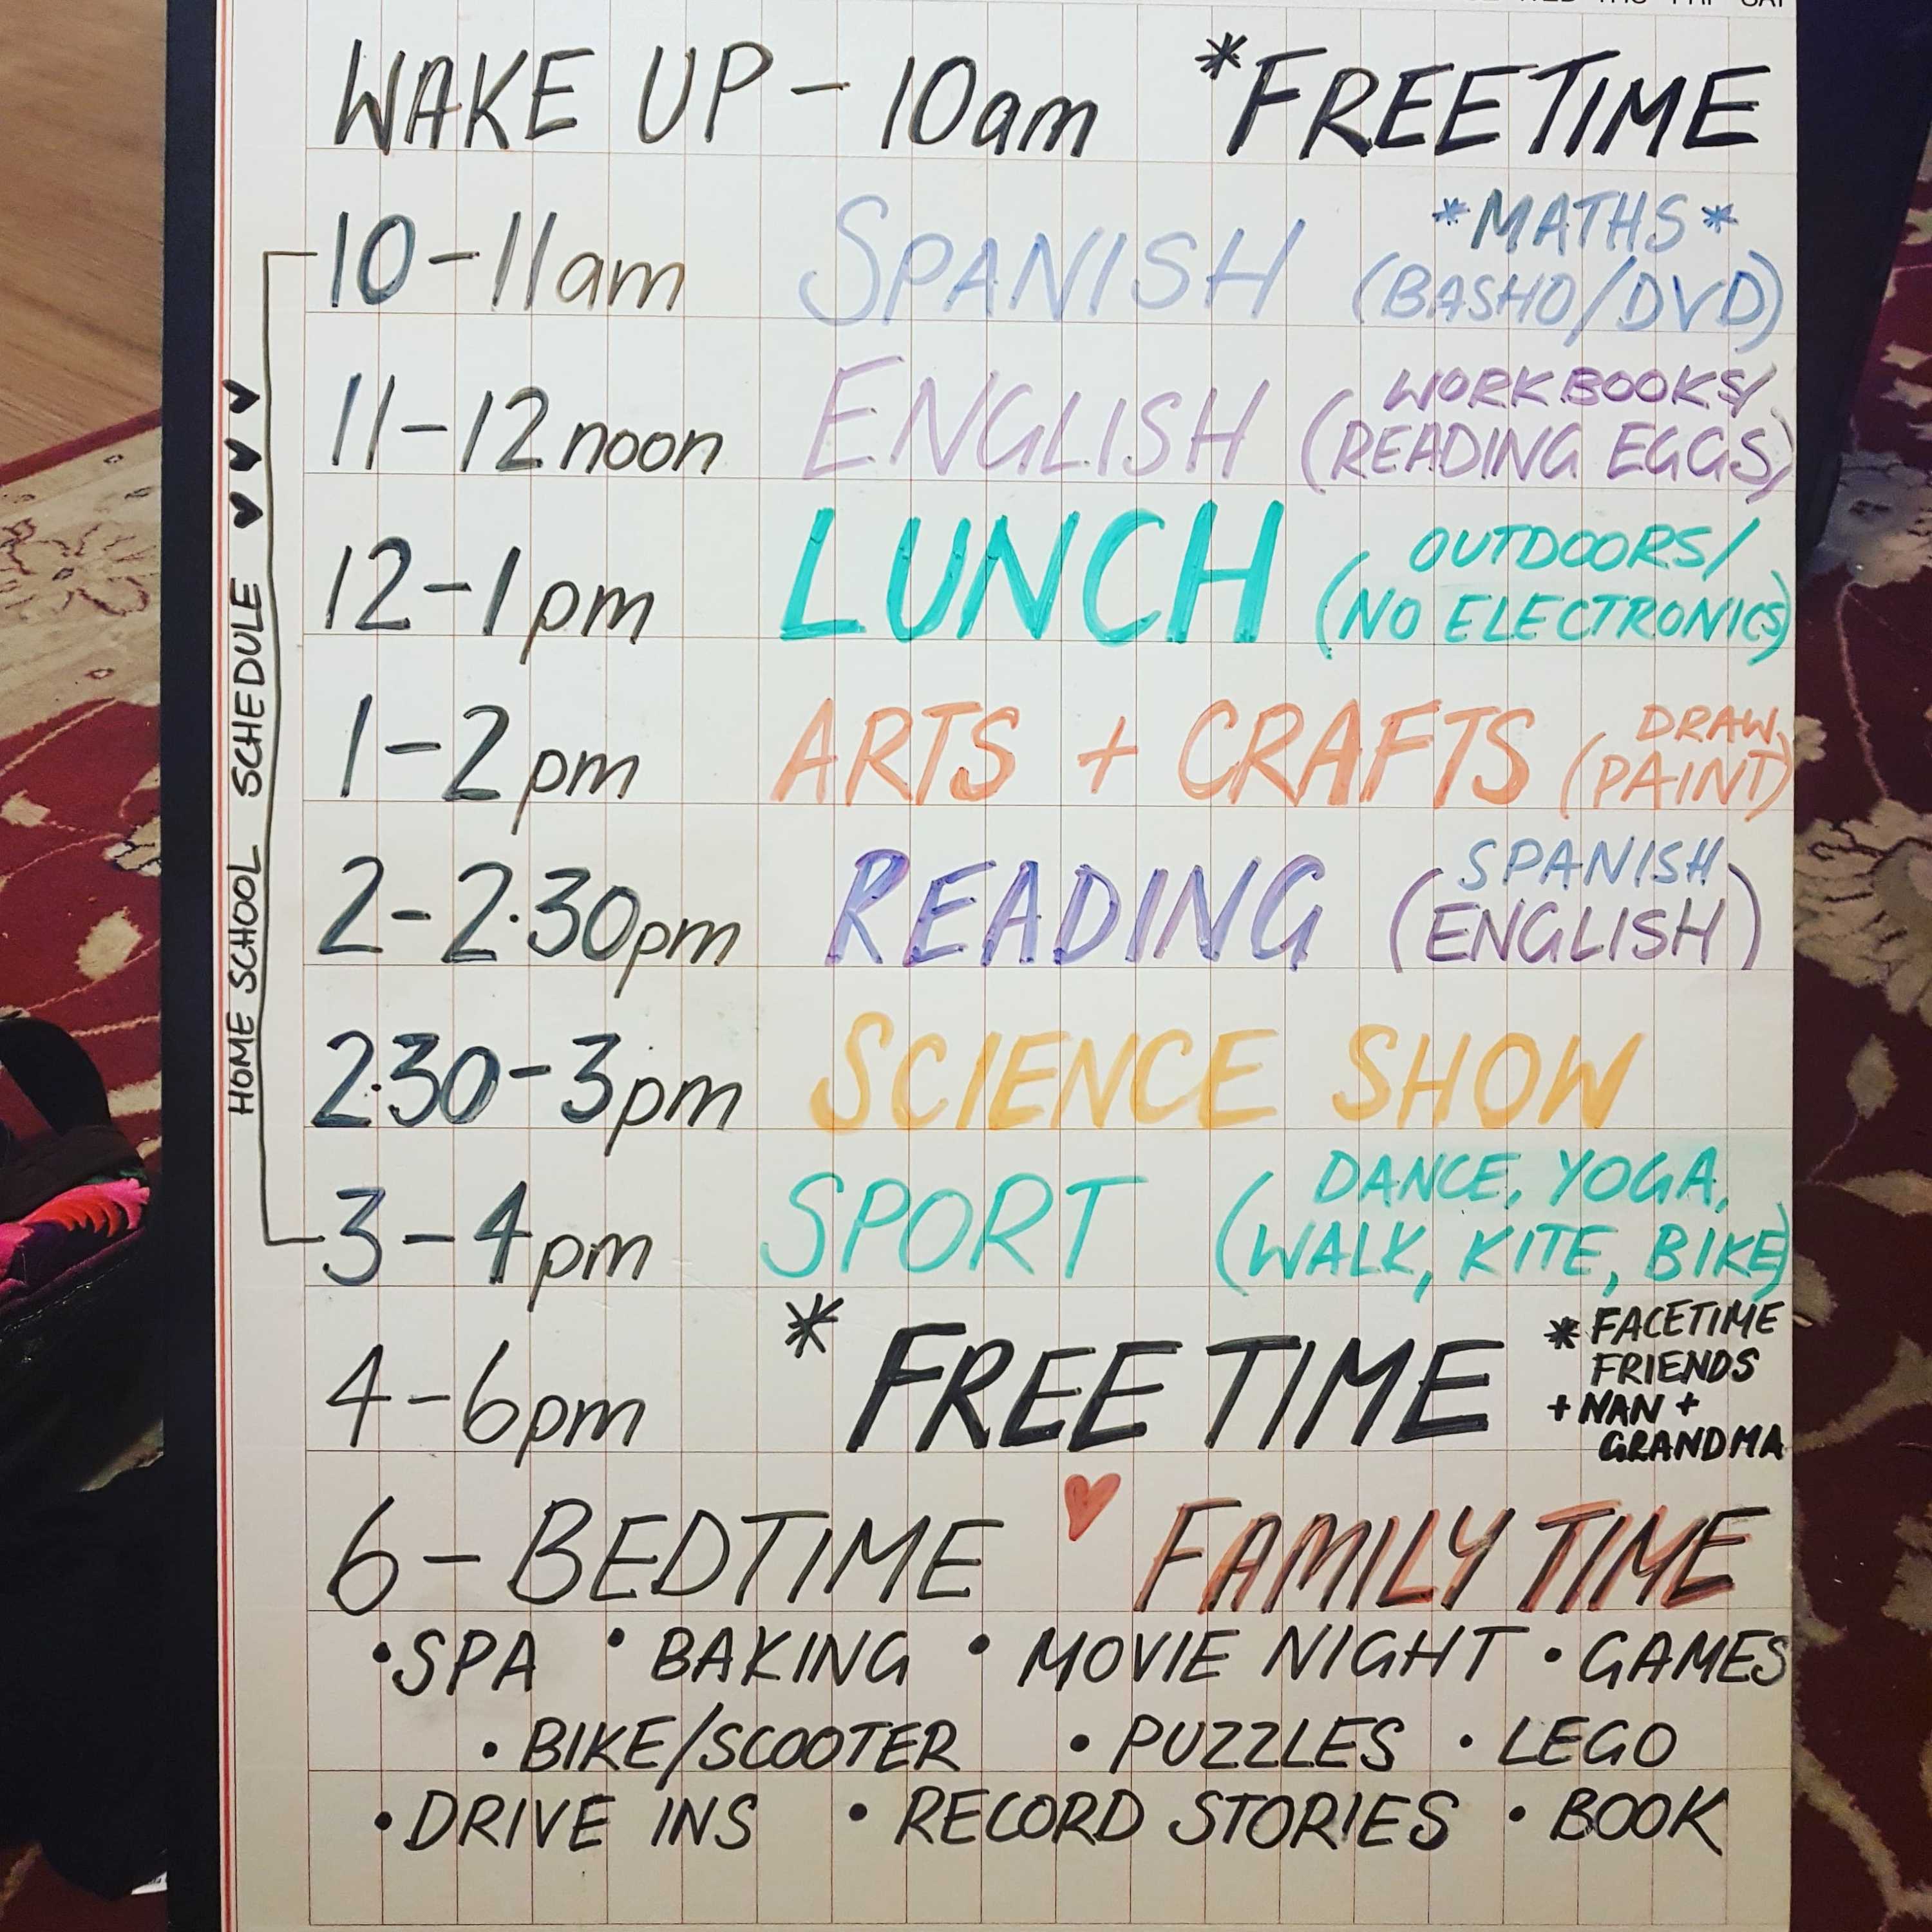 WED THU FRI SAT
WAKE UP - 10am *FREE TIME
10-11am SPANISH *MATHS*
(BASHO/DVD)
11-12 noon ENGLISH (WORKBOOKS/
READING EGGS)
12-1pm LUNCH (OUTDOORS/
NO ELECTRONICS)
1-2pm ARTS + CRAFTS (DRAW,
PAINT)
2-2.30pm READING (SPANISH
ENGLISH)
2.30-3pm SCIENCE SHOW
3-4pm SPORT (DANCE, YOGA,
WALK, KITE, BIKE)
4-6pm *FREE TIME *FACETIME
FRIENDS
+ NAN +
GRANDMA
6-BEDTIME ♥ FAMILY TIME
•SPA •BAKING •MOVIE NIGHT •GAMES
•BIKE/SCOOTER •PUZZLES •LEGO
•DRIVE INS •RECORD STORIES •BOOK
HOME SCHOOL SCHEDULE ♥ ♥ ♥